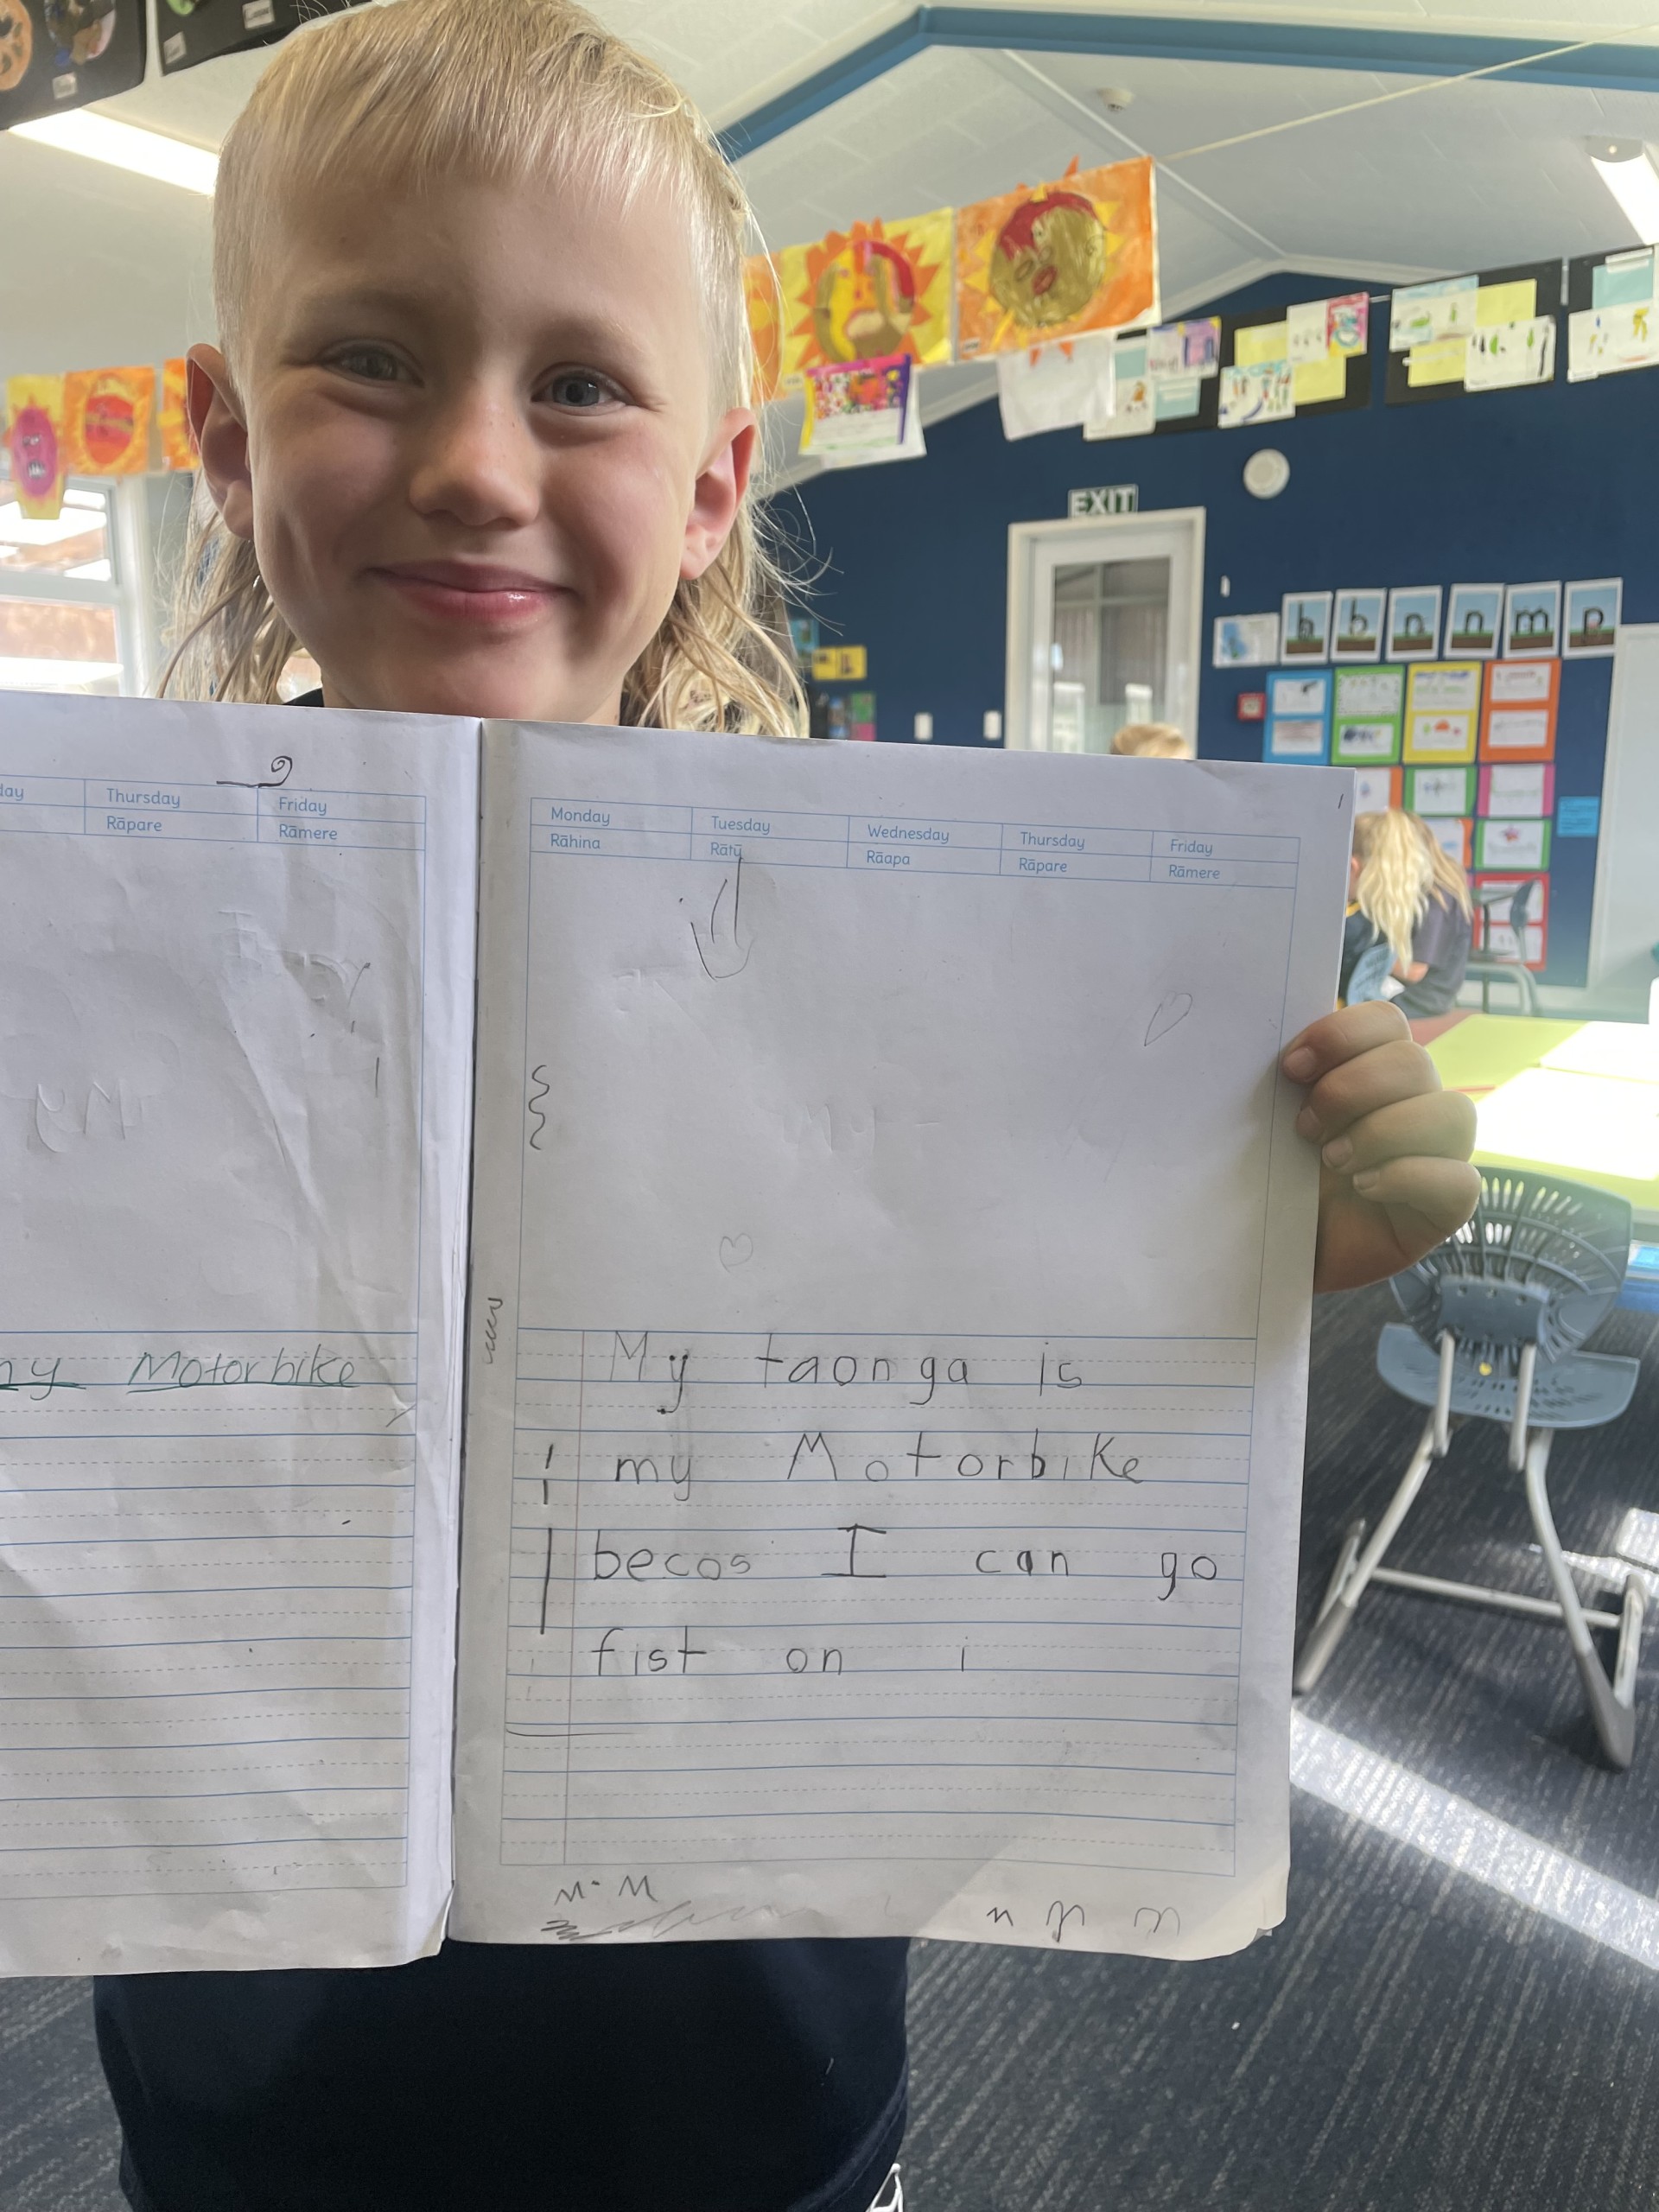 EXIT
h b n n m p
day Thursday Friday
Rāpare Rāmere
my Motorbike
Monday Tuesday Wednesday Thursday Friday
Rāhina Rātū Rāapa Rāpare Rāmere
My taonga is
my Motorbike
becos I can go
fist on i
M M
n n n